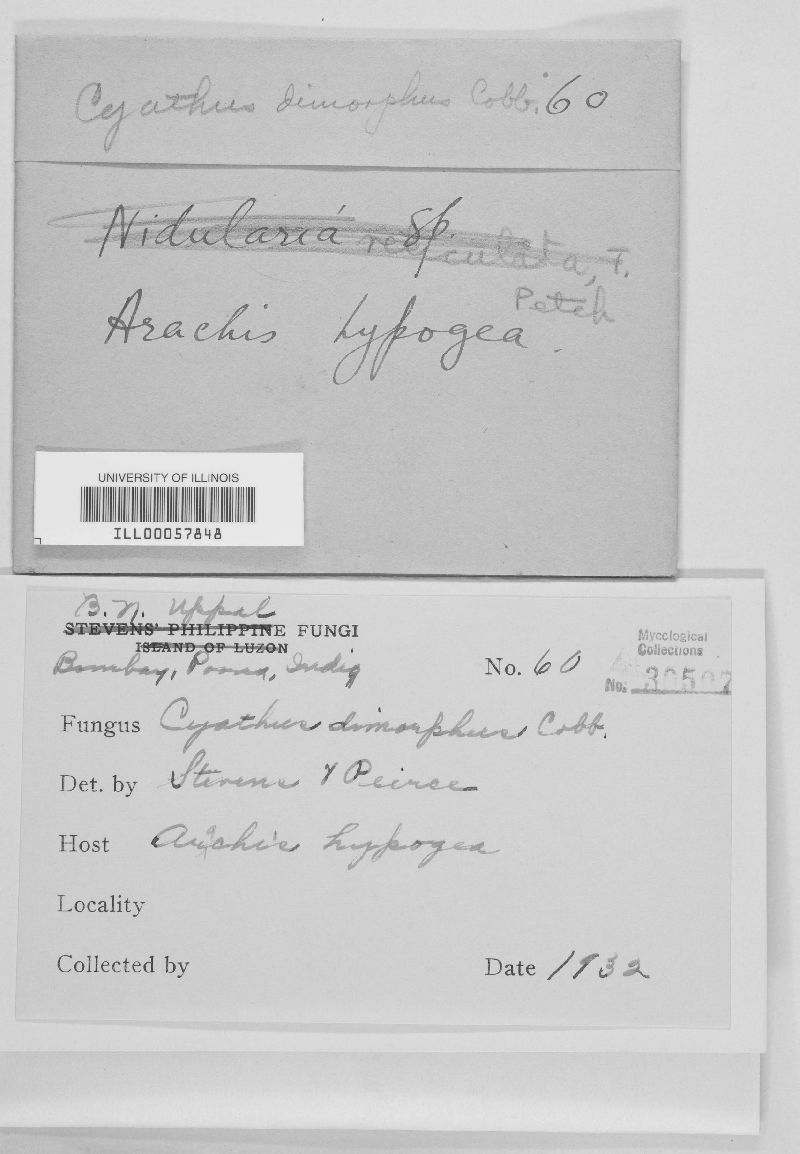 Cyathus dimorphus Cobb. 60
Nidularia sp.
reticulata, T.
Petch
Arachis hypogea.
UNIVERSITY OF ILLINOIS
ILL00057848
B. N. Uppal
STEVENS' PHILIPPINE FUNGI
ISLAND OF LUZON
Bombay, Poona, India
No. 60
Mycological
Collections
No. 30507
Fungus Cyathus dimorphus Cobb.
Det. by Stevens & Peirce
Host Arachis hypogea
Locality
Collected by
Date 1932